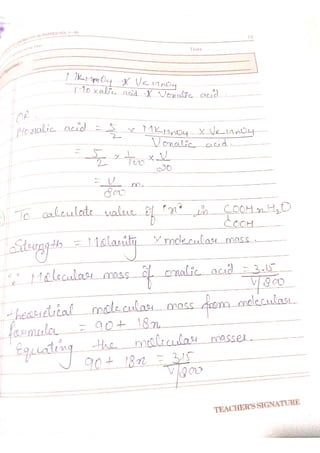 MKMnO4 x VKMnO4
Moxalic acid x Voxalic acid.
OR
Moxalic acid = 5/2 x MKMnO4 x VKMnO4 / Voxalic acid.
= 5/2 x 1/100 x V/20
= V/800 m.
To calculate value of "x", in COOH xH2O
COOH
Strength = Molarity x molecular mass.
∵ Molecular mass of oxalic acid = 3.15
V/800
theoretical molecular mass from molecular
formula = 90 + 18x
Equating the molecular masses.
90 + 18x = 315
V/800
TEACHER'S SIGNATURE